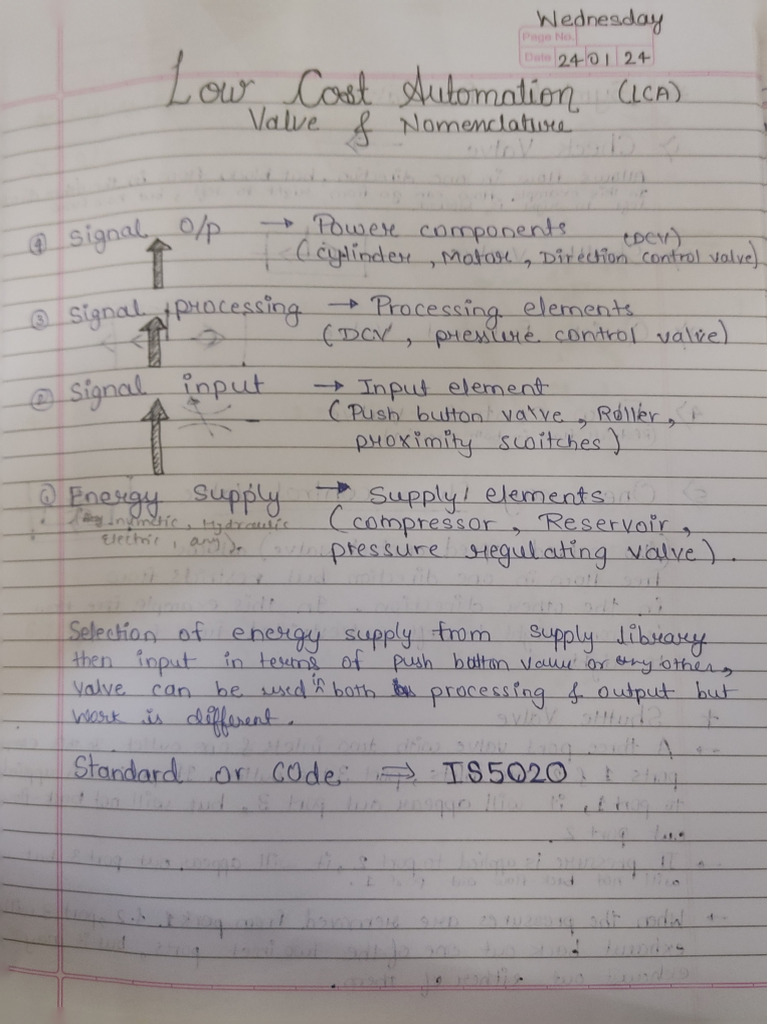 Wednesday
Page No.
Date 24 01 24
Low Cost Automation (LCA)
Valve & Nomenclature
④ Signal O/p → Power components
(DCV)
(cylinder, Motor, Direction control valve)
③ Signal processing → Processing elements
(DCV, pressure control valve)
② Signal input → Input element
(Push button valve, Roller,
proximity switches)
① Energy Supply → Supply elements
(compressor, Reservoir,
Hydraulic
Electric, any).
pressure regulating valve).
Selection of energy supply from supply library
then input in terms of push button value or any other,
valve can be used in both processing & output but
work is different.
Standard or Code ⇒ IS5020